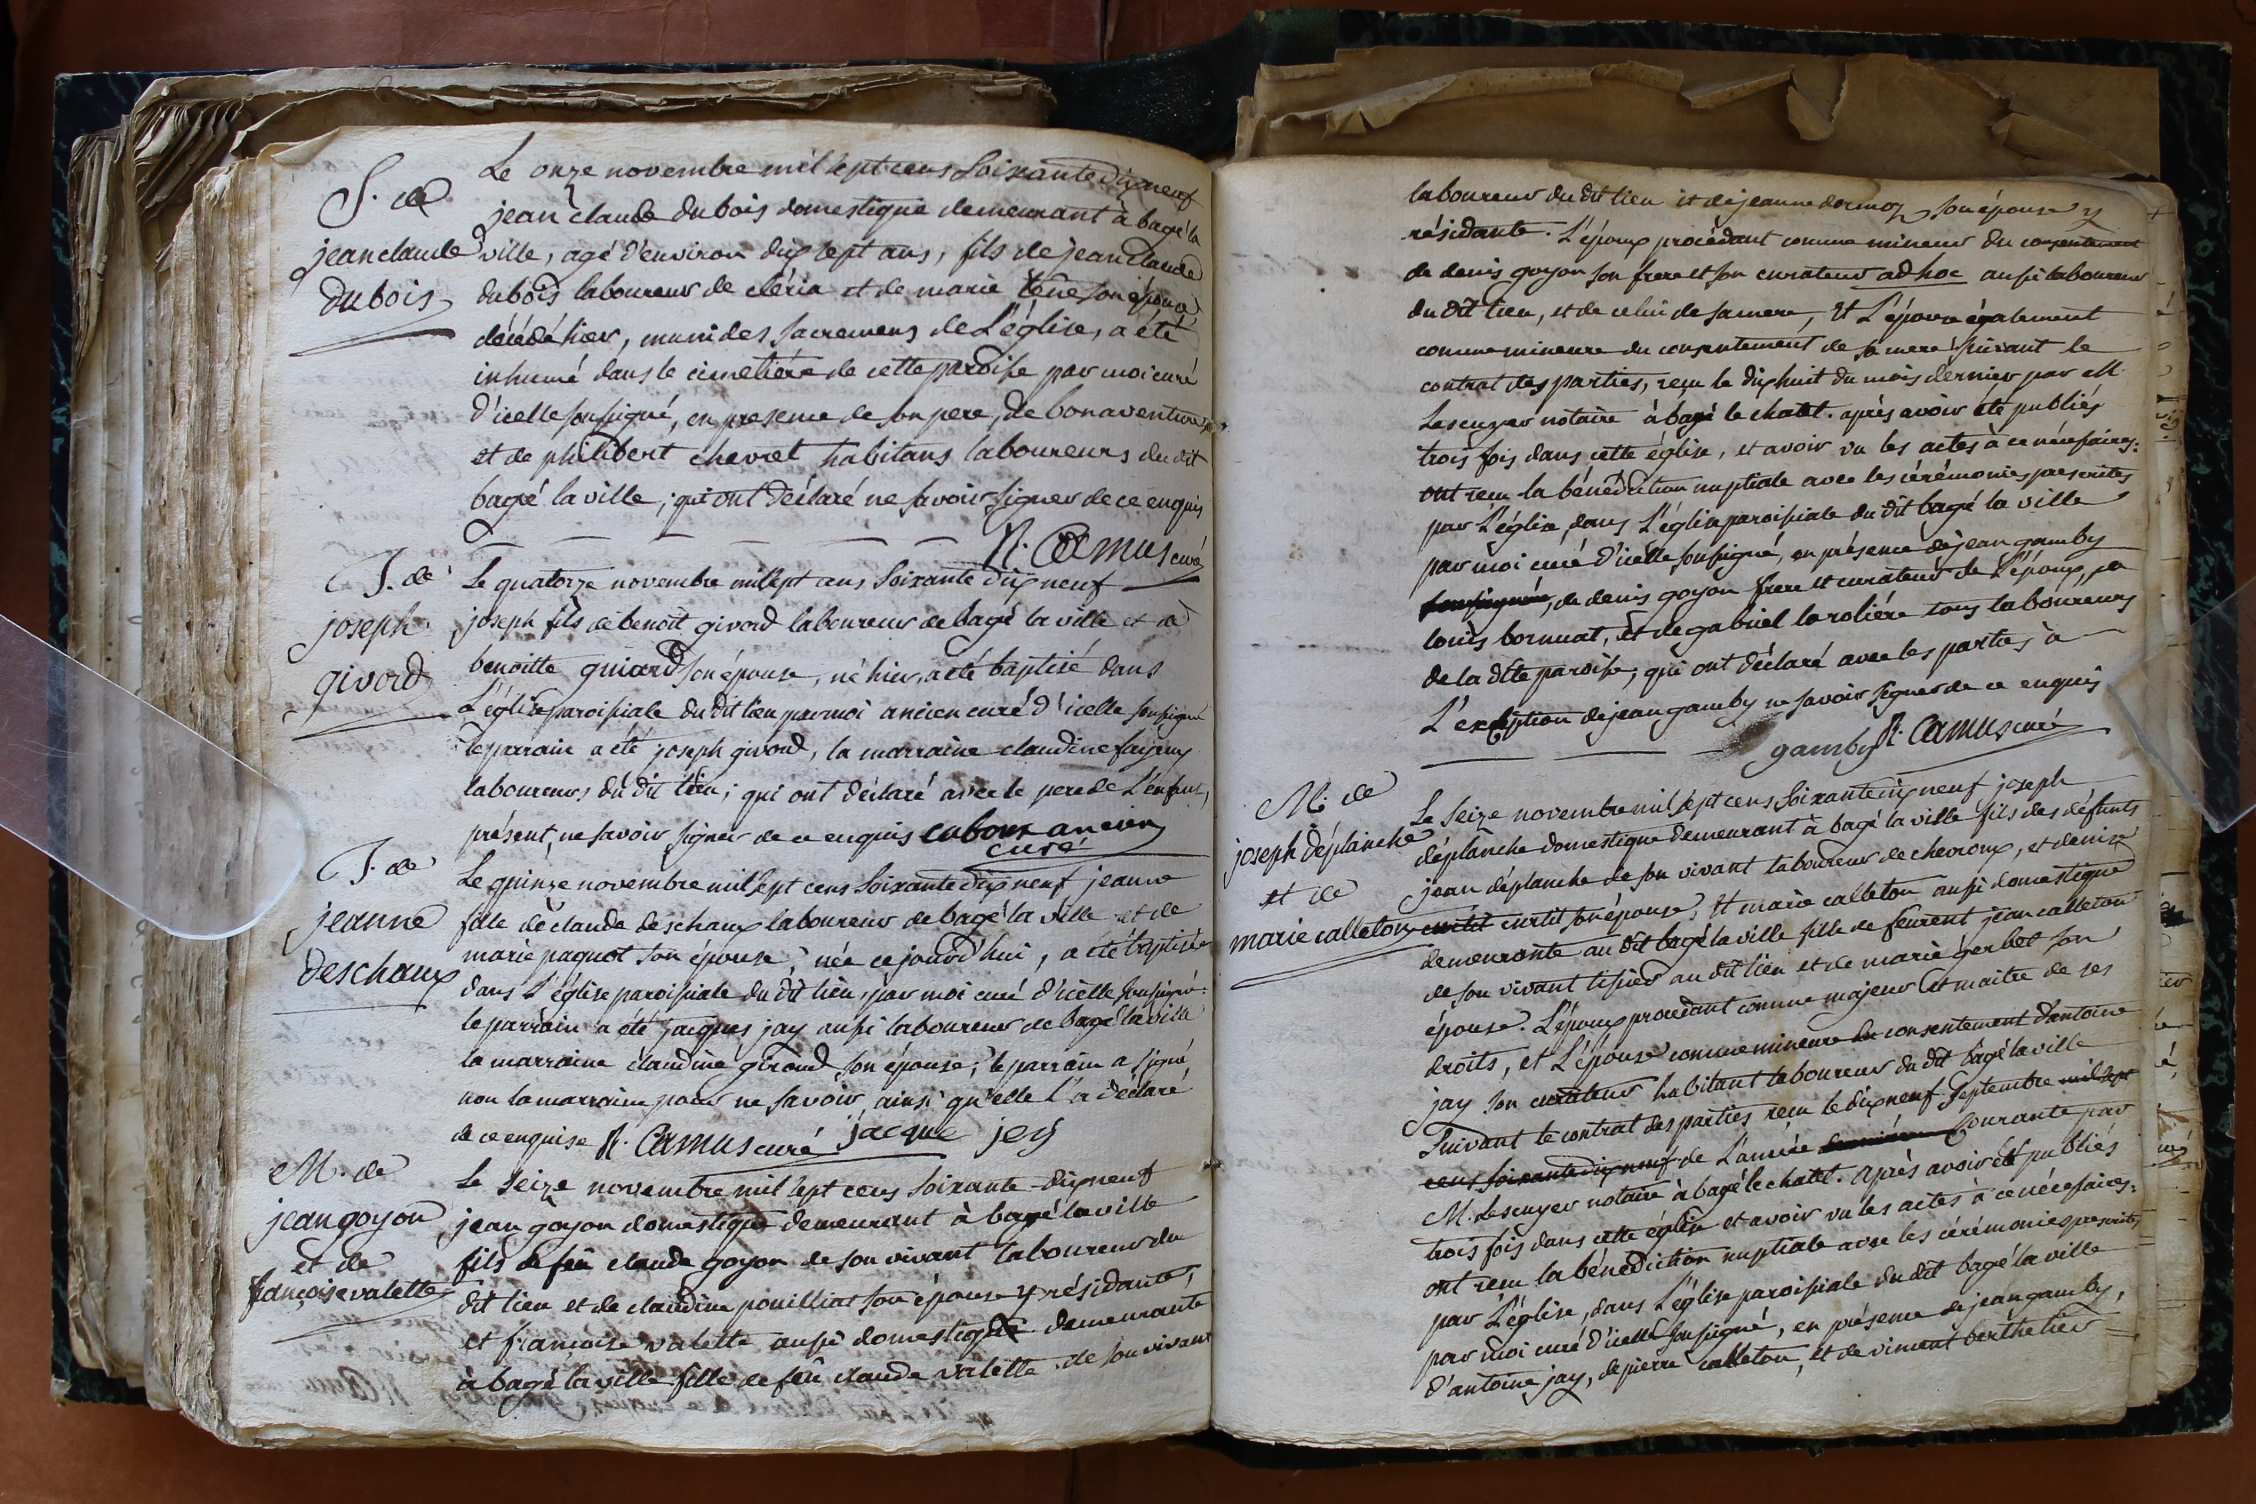 S. de
jean claude
dubois
Le onze novembre mil sept cens soixante dix neuf
jean claude dubois domestique demeurant à bagé la
ville, agé d'environ dix sept ans, fils de jean claude
dubois laboureur de cléria et de marie têne son épouse
décédé hier, muni des sacremens de L'église, a été
inhumé dans le cimetiére de cette paroisse par moi curé
d'icelle soussigné, en presence de son pere, de bonaventure
et de philibert chevret habitans laboureurs du dit
bagé la ville, qui ont déclaré ne savoir signer de ce enquis
R. Camus curé
J. de
joseph
givord
Le quatorze novembre mil sept cens soixante dix neuf
joseph fils de benoit givord laboureur de bagé la ville et de
benoitte guiard son épouse, né hier, a été baptisé dans
L'église paroissiale du dit lieu par moi ancien curé d'icelle soussigné
le parrain a été joseph givord, la marraine claudine
laboureurs du dit lieu; qui ont déclaré avec le pere de L'enfant,
présent, ne savoir signer de ce enquis cabour ancien
curé
J. de
jeanne
deschaux
Le quinze novembre mil sept cens soixante dix neuf jeanne
fille de claude deschaux laboureur de bagé la ville et de
marie paquot son épouse, née ce jourd'hui, a été baptisée
dans L'église paroissiale du dit lieu, par moi curé d'icelle soussigné:
le parrain a été jacques jay aussi laboureur de bagé la ville
la marraine claudine giroud son épouse; le parrain a signé
non la marraine pour ne savoir, ainsi qu'elle l'a déclaré
de ce enquise R. Camus curé jacque jey
M. de
jean goyon
et de
françoise valette
Le seize novembre mil sept cens soixante-dix neuf
jean goyon domestique demeurant à bagé la ville
fils de feu claude goyon de son vivant laboureur du
dit lieu et de claudine pouilliat son épouse y résidante,
et françoise valette aussi domestique demeurante
à bagé la ville fille de feû claude valette de son vivant
laboureur du dit lieu et de jeanne dormoy son épouse y
résidante. L'époux procédant comme mineur du consentement
de denis goyon son frere et son curateur ad hoc aussi laboureur
du dit lieu, et de celui de sa mere, et L'épouse également
comme mineure du consentement de sa mere suivant le
contrat des parties, reçu le dix huit du mois dernier par M.
Lescuyer notaire à bagé le chatel. après avoir été publiés
trois fois dans cette église, et avoir vu les actes à ce nécessaires:
ont reçu la bénédiction nuptiale avec les cérémonies prescrites
par L'église, dans L'église paroissiale du dit bagé la ville
par moi curé d'icelle soussigné, en présence de jean gamby
soussigné, de denis goyon frere et curateur de L'époux, de
louis bornuat, et de gabriel la roliére tous laboureurs
de la dite paroisse, qui ont déclaré avec les parties à
L'exception de jean gamby ne savoir signer de ce enquis
gamby R. Camus curé
M. de
joseph déplanche
et de
marie calleton
Le seize novembre mil sept cens soixante dix neuf joseph
déplanche domestique demeurant à bagé la ville fils des défunts
jean déplanche de son vivant laboureur de chevroux, et denise
curtil curtil son épouse, et marie calleton aussi domestique
demeurante au dit bagé la ville fille de feu rent jean calleton
de son vivant tissier au dit lieu et de marie gerbet son
épouse. L'époux procedant comme majeur et maitre de ses
droits, et L'épouse comme mineure du consentement d'antoine
jay son curateur habitant laboureur du dit bagé la ville
suivant le contrat des parties reçu le dix neuf septembre mil sept
cens soixante dix neuf de L'année derniére courante par
M. Lescuyer notaire à bagé le chatel. après avoir été publiés
trois fois dans cette église et avoir vu les actes à ce nécessaires:
ont reçu la bénédiction nuptiale avec les cérémonies prescrites
par L'église, dans L'église paroissiale du dit bagé la ville
par moi curé d'icelle soussigné, en présence de jean gamby,
d'antoine jay, de pierre calleton, et de vincent berthelier